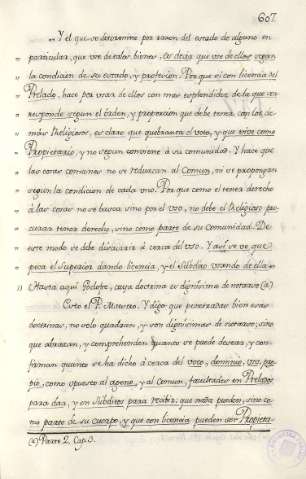 607.
Y el que se determine por razon del estado de alguno en
particular, que use de tales bienes. Es decir que use de ellos segun
la condicion de su estado, y profesion. Porque si con licencia del
Prelado, hace por usar de ellos con mas esplendidez de lo que co-
rresponde segun el orden, y proporcion que debe tener con los de-
más Religiosos, es claro que quebranta el voto, y que vive como
Propietario, y no segun conviene á su comunidad. Y hace que
las cosas comunes no se reduzcan al Comun, ni se propongan
segun la condicion de cada uno. Porque como el tener derecho
á las cosas no se busca sino por el uso, no debe el Religioso pro-
curar tener derecho, sino como parte de su Comunidad. De
este modo se debe discurrir á cerca del uso. Y así se ve que
peca el Superior dando licencia, y el Súbdito usando de ella.
Hasta aquí Podestá, cuya doctrina es dignísima de notarse (a)
Esto el P. Murcia. Y digo que penetradas bien estas
doctrinas, no solo quadran, y son dignísimas de notarse, sino
que abrazan, y comprehenden quanto se puede desear, y con-
firman quanto se ha dicho á cerca del voto, dominio, uso, pro-
pio, como opuesto al ageno, y al Comun, facultades en Prelados
para dar, y en Súbditos para recibir, que nada pueden, sino co-
mo parte de su cuerpo, y que con licencia pueden ser Propieta-
(a) Parte 2. Cap. 3.